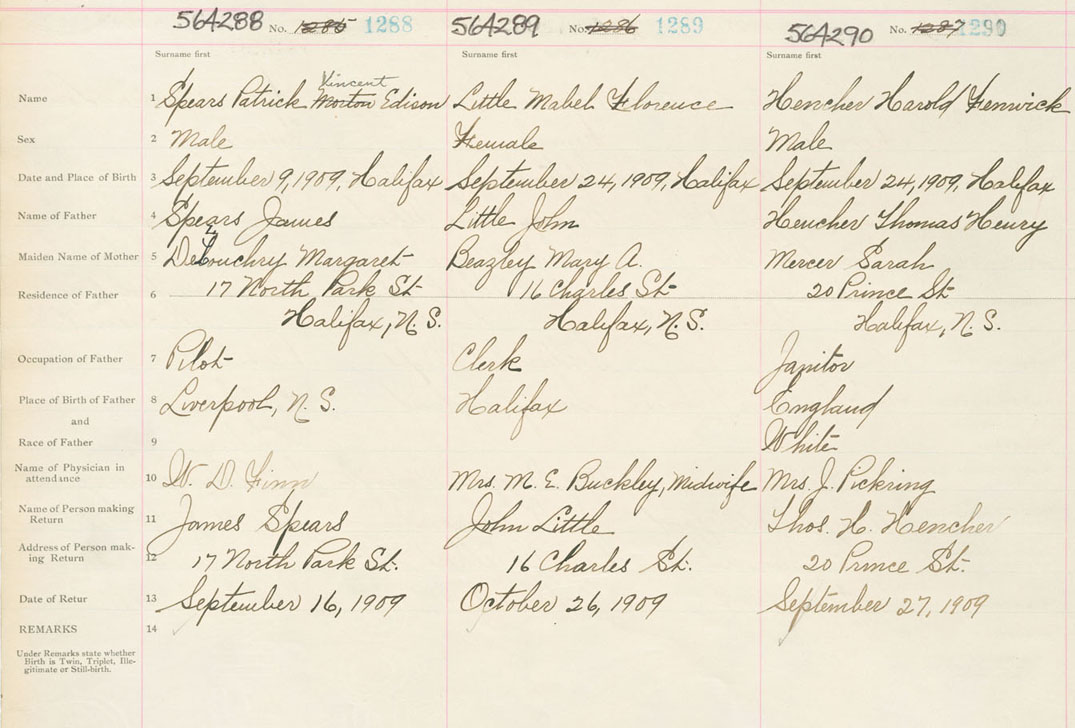 564288 No. 1285 1288 564289 No. 1286 1289 564290 No. 1287 1290
Surname first Surname first Surname first
Vincent
Name 1 Spears Patrick Morton Edison Little Mabel Florence Hencher Harold Fenwick
Sex 2 Male Female Male
Date and Place of Birth 3 September 9, 1909, Halifax September 24, 1909, Halifax September 24, 1909, Halifax
Name of Father 4 Spears James Little John Hencher Thomas Henry
Maiden Name of Mother 5 DeBouchry Margaret Beazley Mary A. Mercer Sarah
Residence of Father 6 17 North Park St 16 Charles St 20 Prince St
Halifax, N.S. Halifax, N.S. Halifax, N.S.
Occupation of Father 7 Pilot Clerk Janitor
Place of Birth of Father 8 Liverpool, N.S. Halifax England
and
Race of Father 9 White
Name of Physician in
attendance 10 W. D. Finn Mrs. M. E. Buckley, Midwife Mrs. J. Pickring
Name of Person making
Return 11 James Spears John Little Thos. H. Hencher
Address of Person mak-
ing Return 12 17 North Park St. 16 Charles St. 20 Prince St.
Date of Retur 13 September 16, 1909 October 26, 1909 September 27, 1909
REMARKS 14
Under Remarks state whether
Birth is Twin, Triplet, Ille-
gitimate or Still-birth.